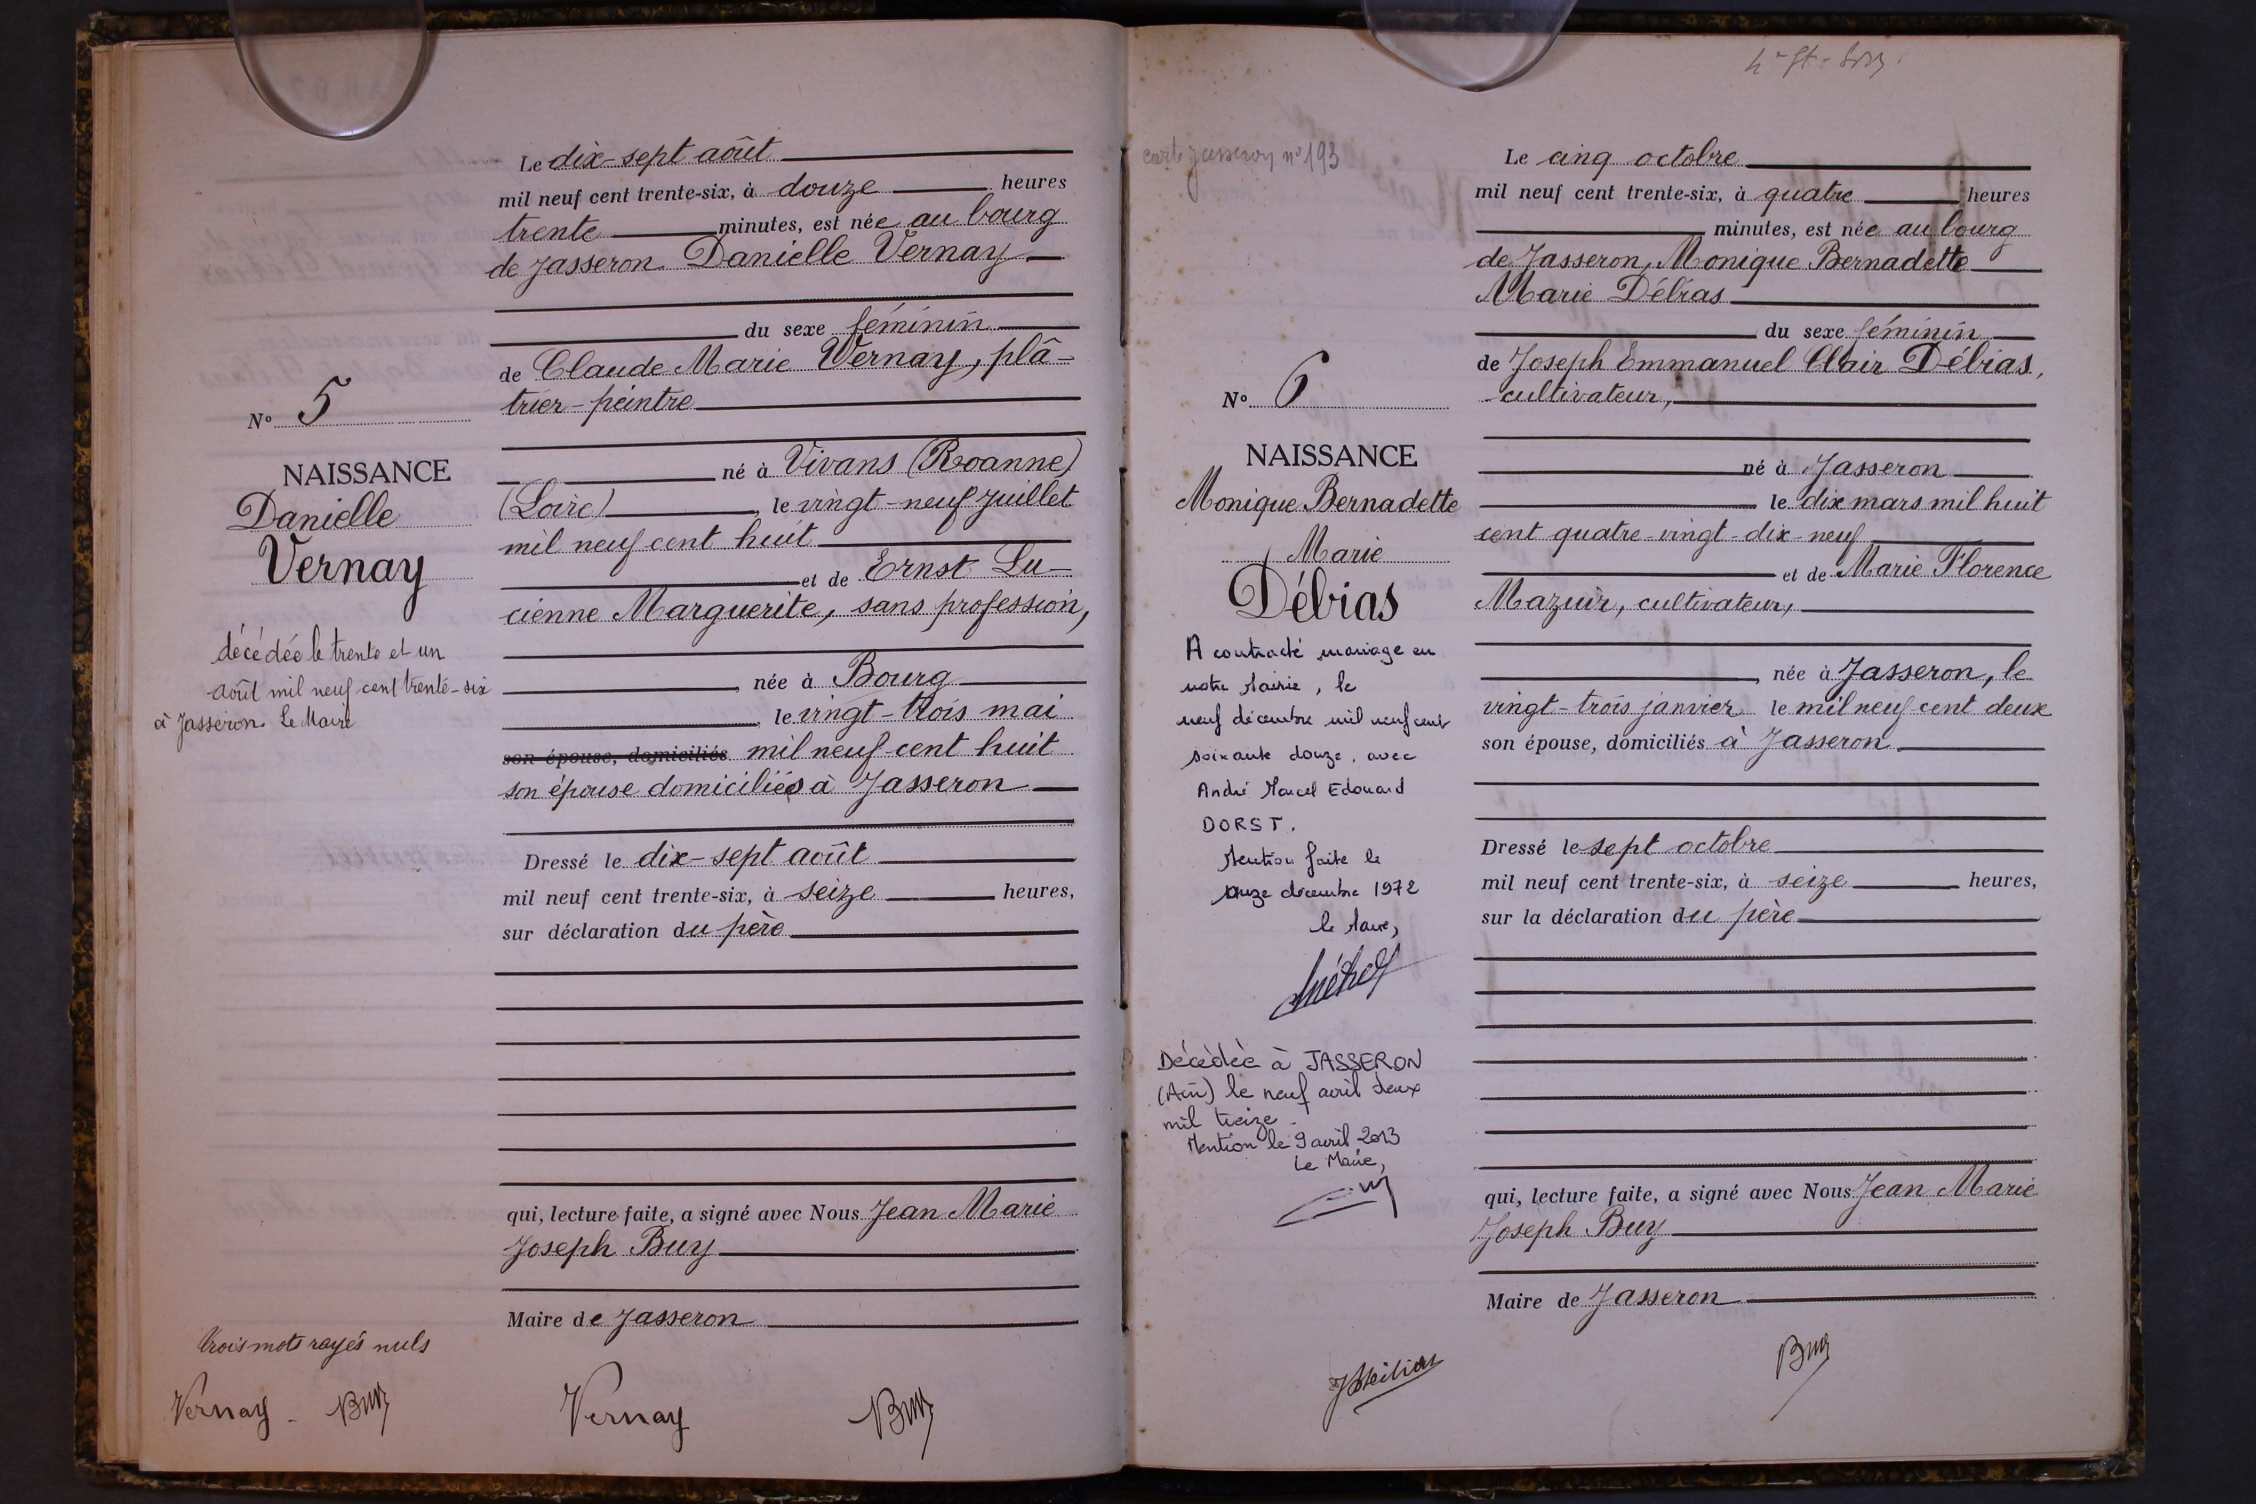 Le dix-sept août
mil neuf cent trente-six, à douze heures
trente minutes, est née au bourg
de Jasseron Danielle Vernay
du sexe féminin
de Claude Marie Vernay, plâ-
trier-peintre
N° 5
né à Vivans (Roanne)
NAISSANCE
(Loire), le vingt-neuf juillet
Danielle
mil neuf cent huit
Vernay
et de Ernst Lu-
cienne Marguerite, sans profession,
décédée le trente et un
août mil neuf cent trente-six
à Jasseron Le Maire
, née à Bourg
, le vingt-trois mai
son épouse, domiciliés mil neuf cent huit
son épouse domiciliés à Jasseron
Dressé le dix-sept août
mil neuf cent trente-six, à seize heures,
sur déclaration du père
qui, lecture faite, a signé avec Nous Jean Marie
Joseph Buy
Maire de Jasseron
trois mots rayés nuls
Vernay - Buy
Vernay Buy
carte Jasseron n° 193
Le cinq octobre
mil neuf cent trente-six, à quatre heures
minutes, est née au bourg
de Jasseron, Monique Bernadette
Marie Débias
du sexe féminin
de Joseph Emmanuel Clair Débias,
cultivateur,
N° 6
né à Jasseron
NAISSANCE
le dix mars mil huit
Monique Bernadette
cent quatre-vingt-dix-neuf
Marie
Débias
et de Marie Florence
Mazuir, cultivateur,
, née à Jasseron, le
vingt-trois janvier le mil neuf cent deux
son épouse, domiciliés à Jasseron
A contracté mariage en
notre Mairie, le
neuf décembre mil neuf cent
soixante douze, avec
André Marcel Edouard
DORST.
Mention faite le
onze décembre 1972
le Maire,
Décèdée à JASSERON
(Ain) le neuf avril deux
mil treize.
Mention le 9 avril 2013
Le Maire,
Dressé le sept octobre
mil neuf cent trente-six, à seize heures,
sur la déclaration du père
qui, lecture faite, a signé avec Nous Jean Marie
Joseph Buy
Maire de Jasseron
Buy